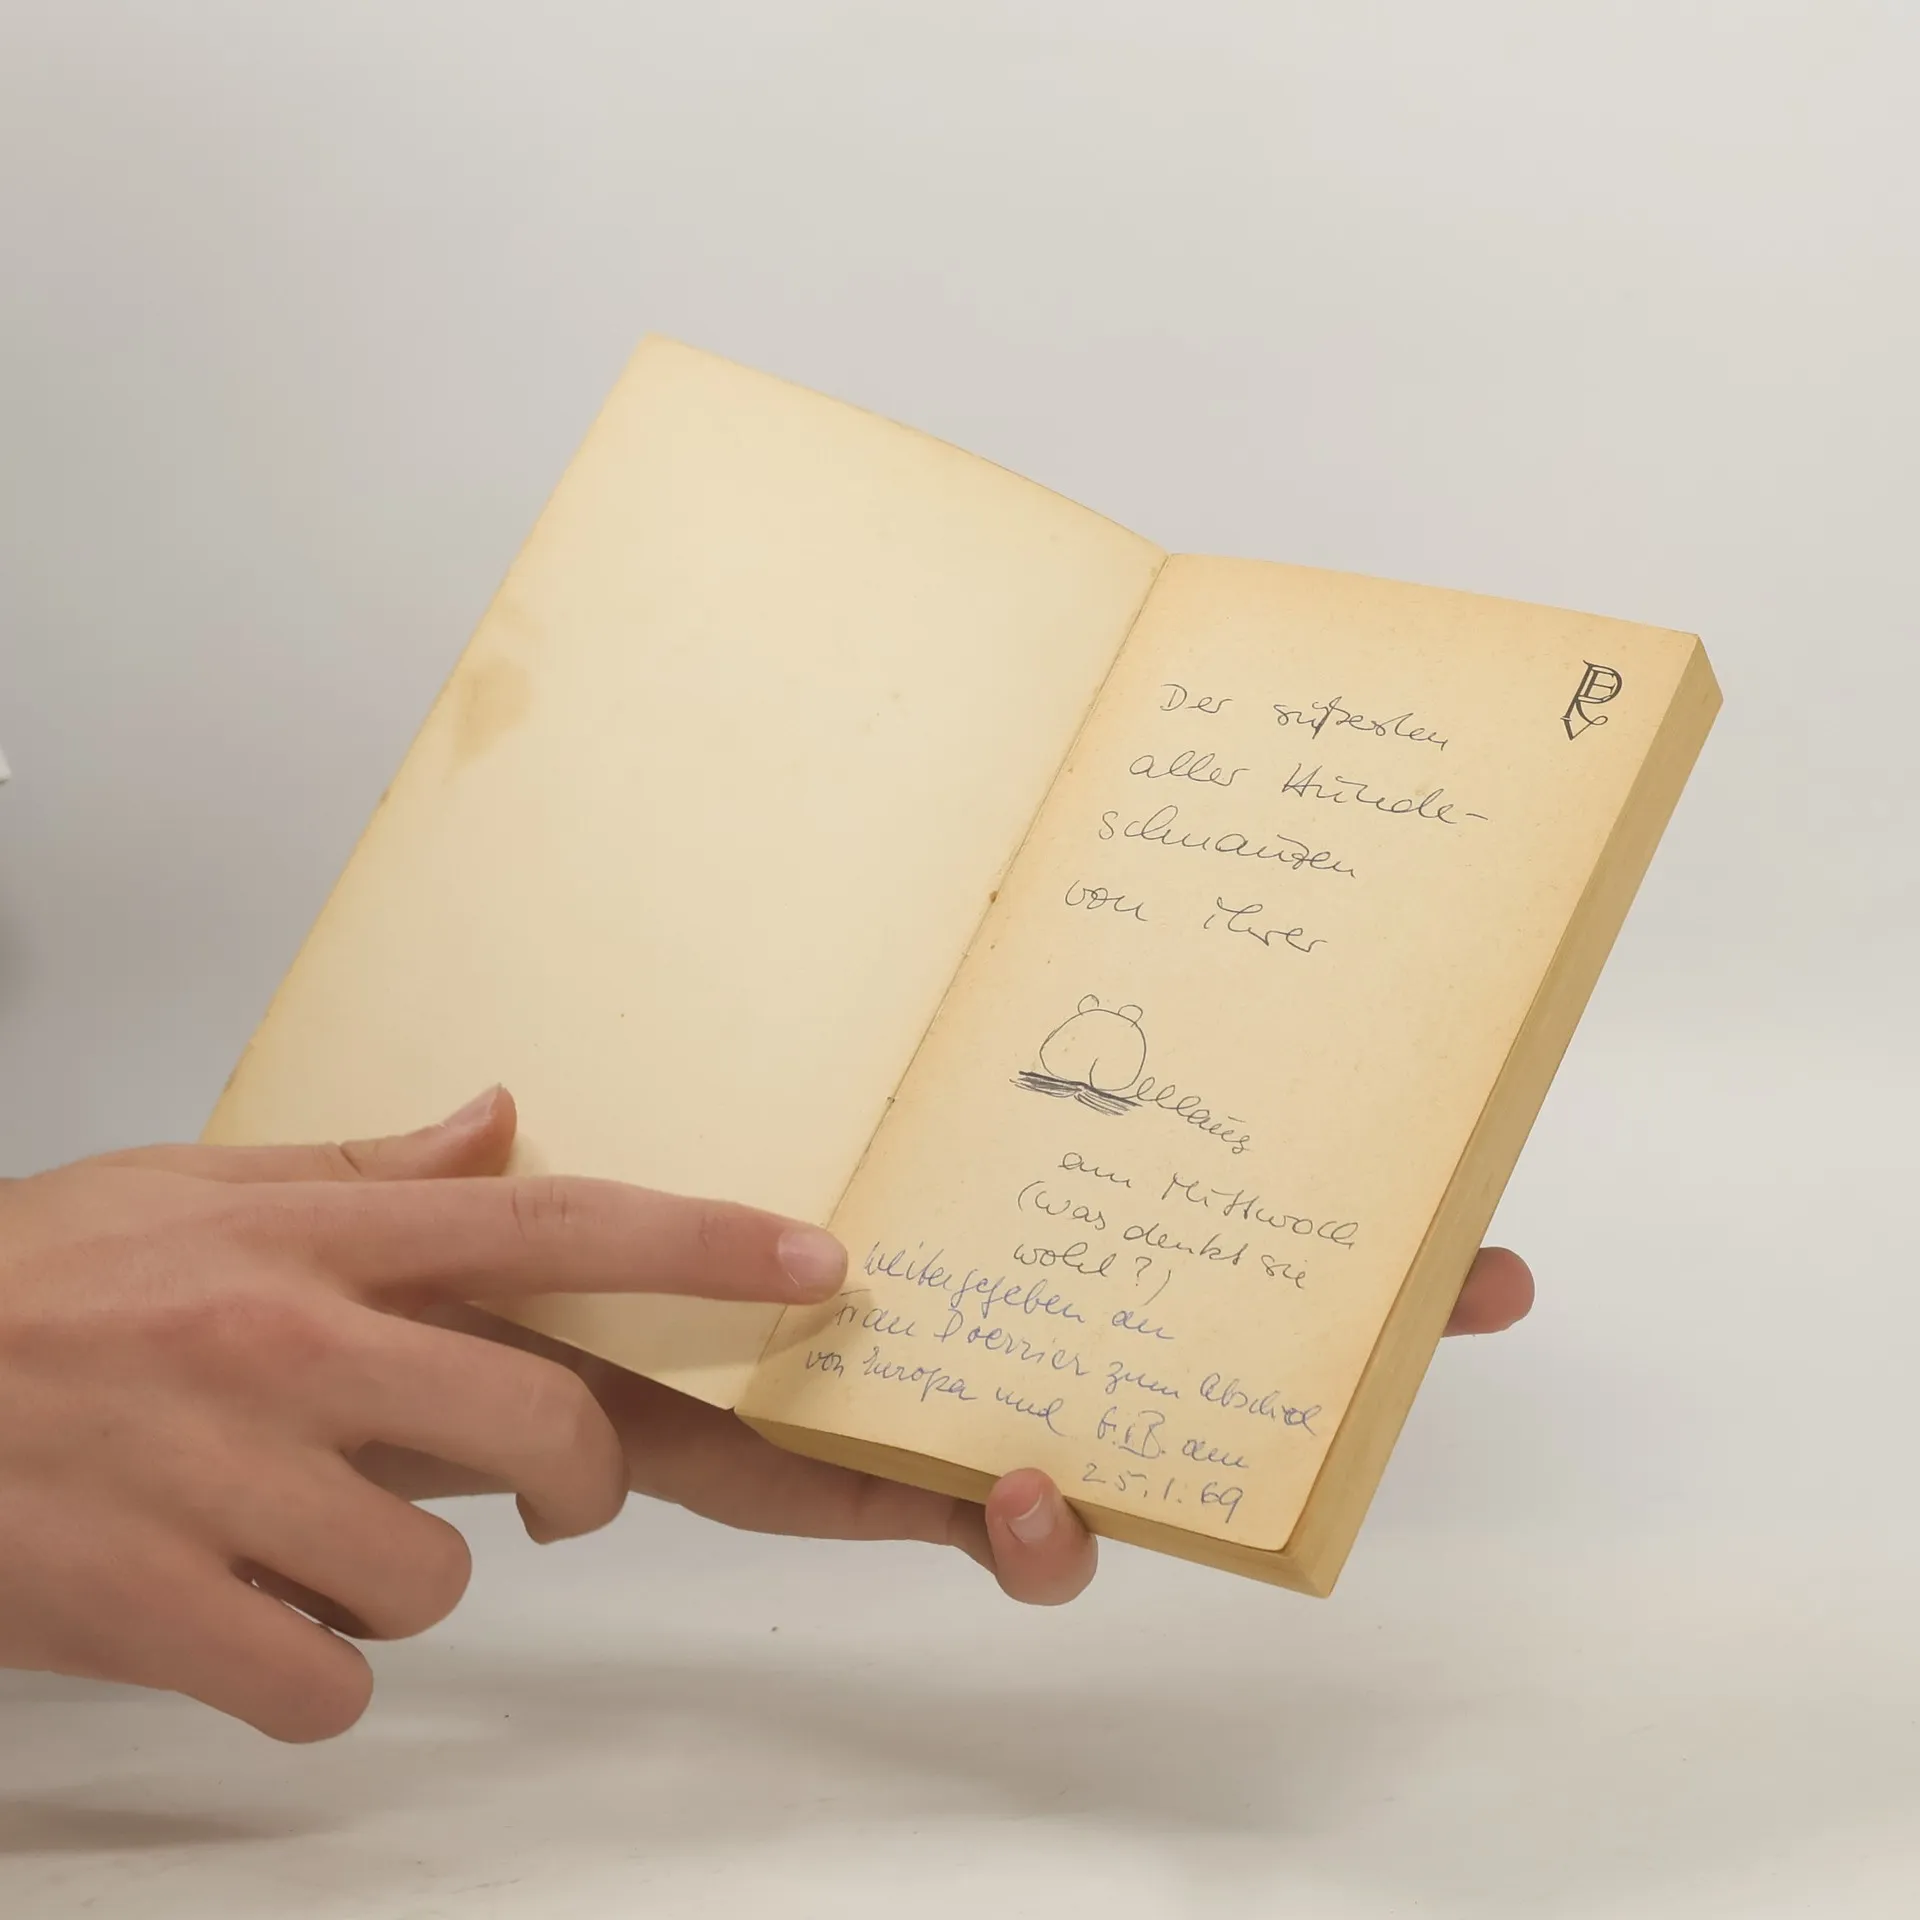 DEKV
Der süßesten
aller Hunde-
schnauzen
von ihrer
am Mittwoch
(was denkt sie
wohl?)
weitergegeben an
Frau zum Abschied
von Europa und am
25.1.69